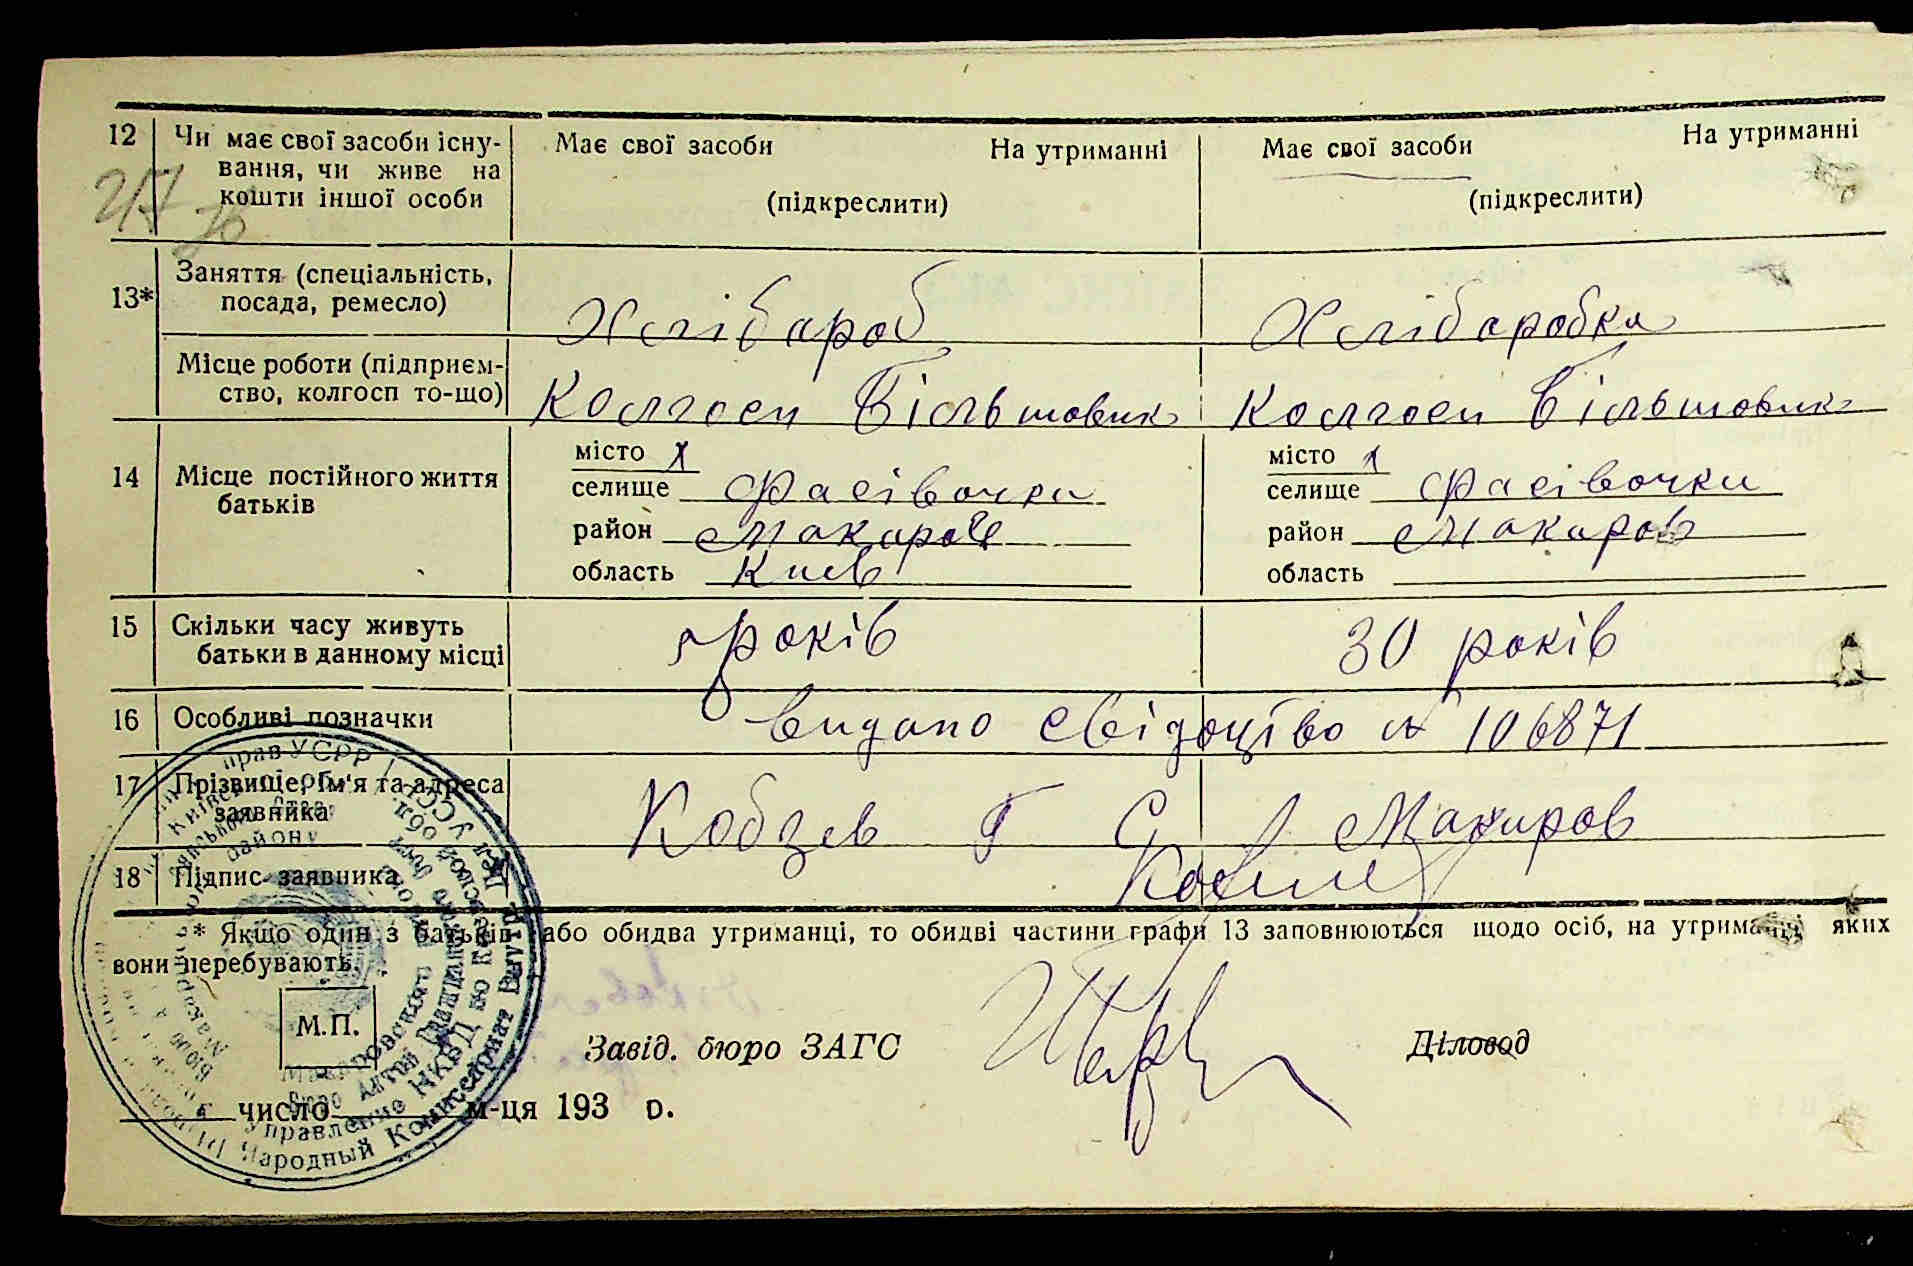 12 Чи має свої засоби існу-
вання, чи живе на
кошти іншої особи
Має свої засоби На утриманні
(підкреслити)
Має свої засоби На утриманні
(підкреслити)
13* Заняття (спеціальність,
посада, ремесло)
Хлібароб
Хлібаробка
Місце роботи (підприєм-
ство, колгосп то-що)
Колгосп Більшовик
Колгосп Більшовик
14 Місце постійного життя
батьків
місто х
селище Фасівочка
район Макаров
область Киев
місто х
селище Фасівочка
район Макаров
область
15 Скільки часу живуть
батьки в данному місці
років
30 років
16 Особливі позначки
видано свідоцтво № 106871
17 Прізвище, ім'я та адреса
заявника
Кобзев Г С Макаров
18 Підпис заявника
* Якщо один з батьків або обидва утриманці, то обидві частини графи 13 заповнюються щодо осіб, на утриманні яких
вони перебувають.
М.П.
Завід. бюро ЗАГС
Діловод
число м-ця 193 р.
прав УСРР
району
Управление НКВД по Киевской обл.
Народный Комиссариат Внутр. Дел УССР